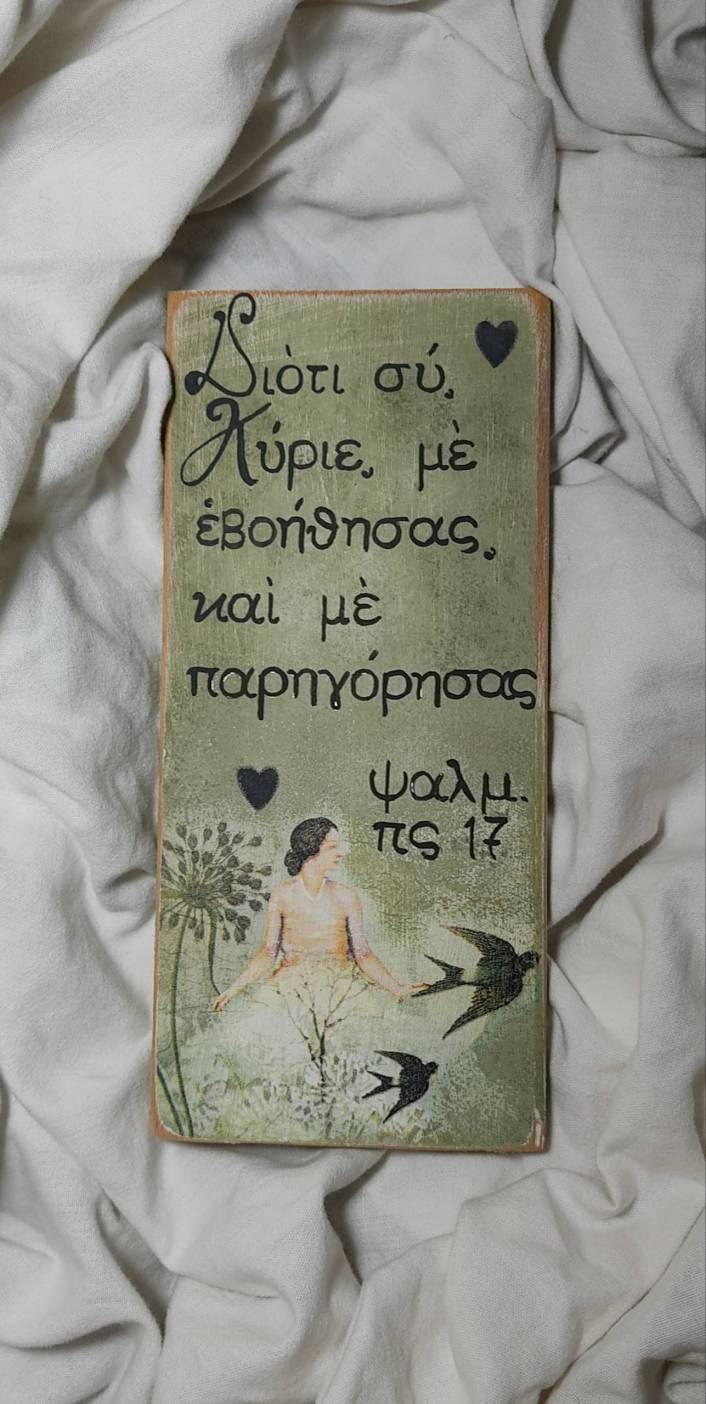 Διὸτι σύ,
Κύριε, μὲ
ἐβοήθησας,
καὶ μὲ
παρηγόρησας
ψαλμ.
πς 17